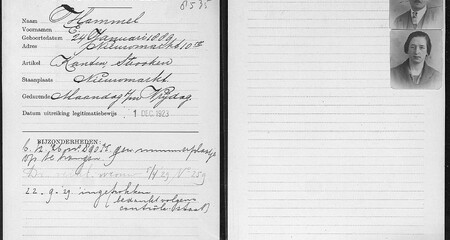 8535
Naam Hammel
Voornamen E.
Geboortedatum 24 Januari 1889
Adres Nieuwmarkt 10
Artikel Kanten Strooken
Staanplaats Nieuwmarkt
Gedurende Maandag t/m Vrijdag.
Datum uitreiking legitimatiebewijs 1 DEC. 1923
BIJZONDERHEDEN:
geen nummerplaatje
op te hangen
22.9.29. ingetrokken
(bedankt volgens
controle staat)